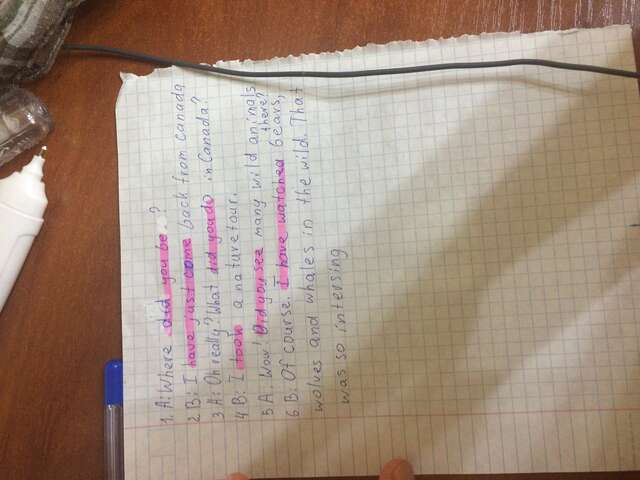 1. A: Where did you be..?
2 B: I have just come back from Canada
3 A: Oh really? What did you do in Canada?
4 B: I took a nature tour.
5 A. Wow! Did you see many wild animals there?
6. B. Of course. I have watched bears,
wolves and whales in the wild. That
was so intersing